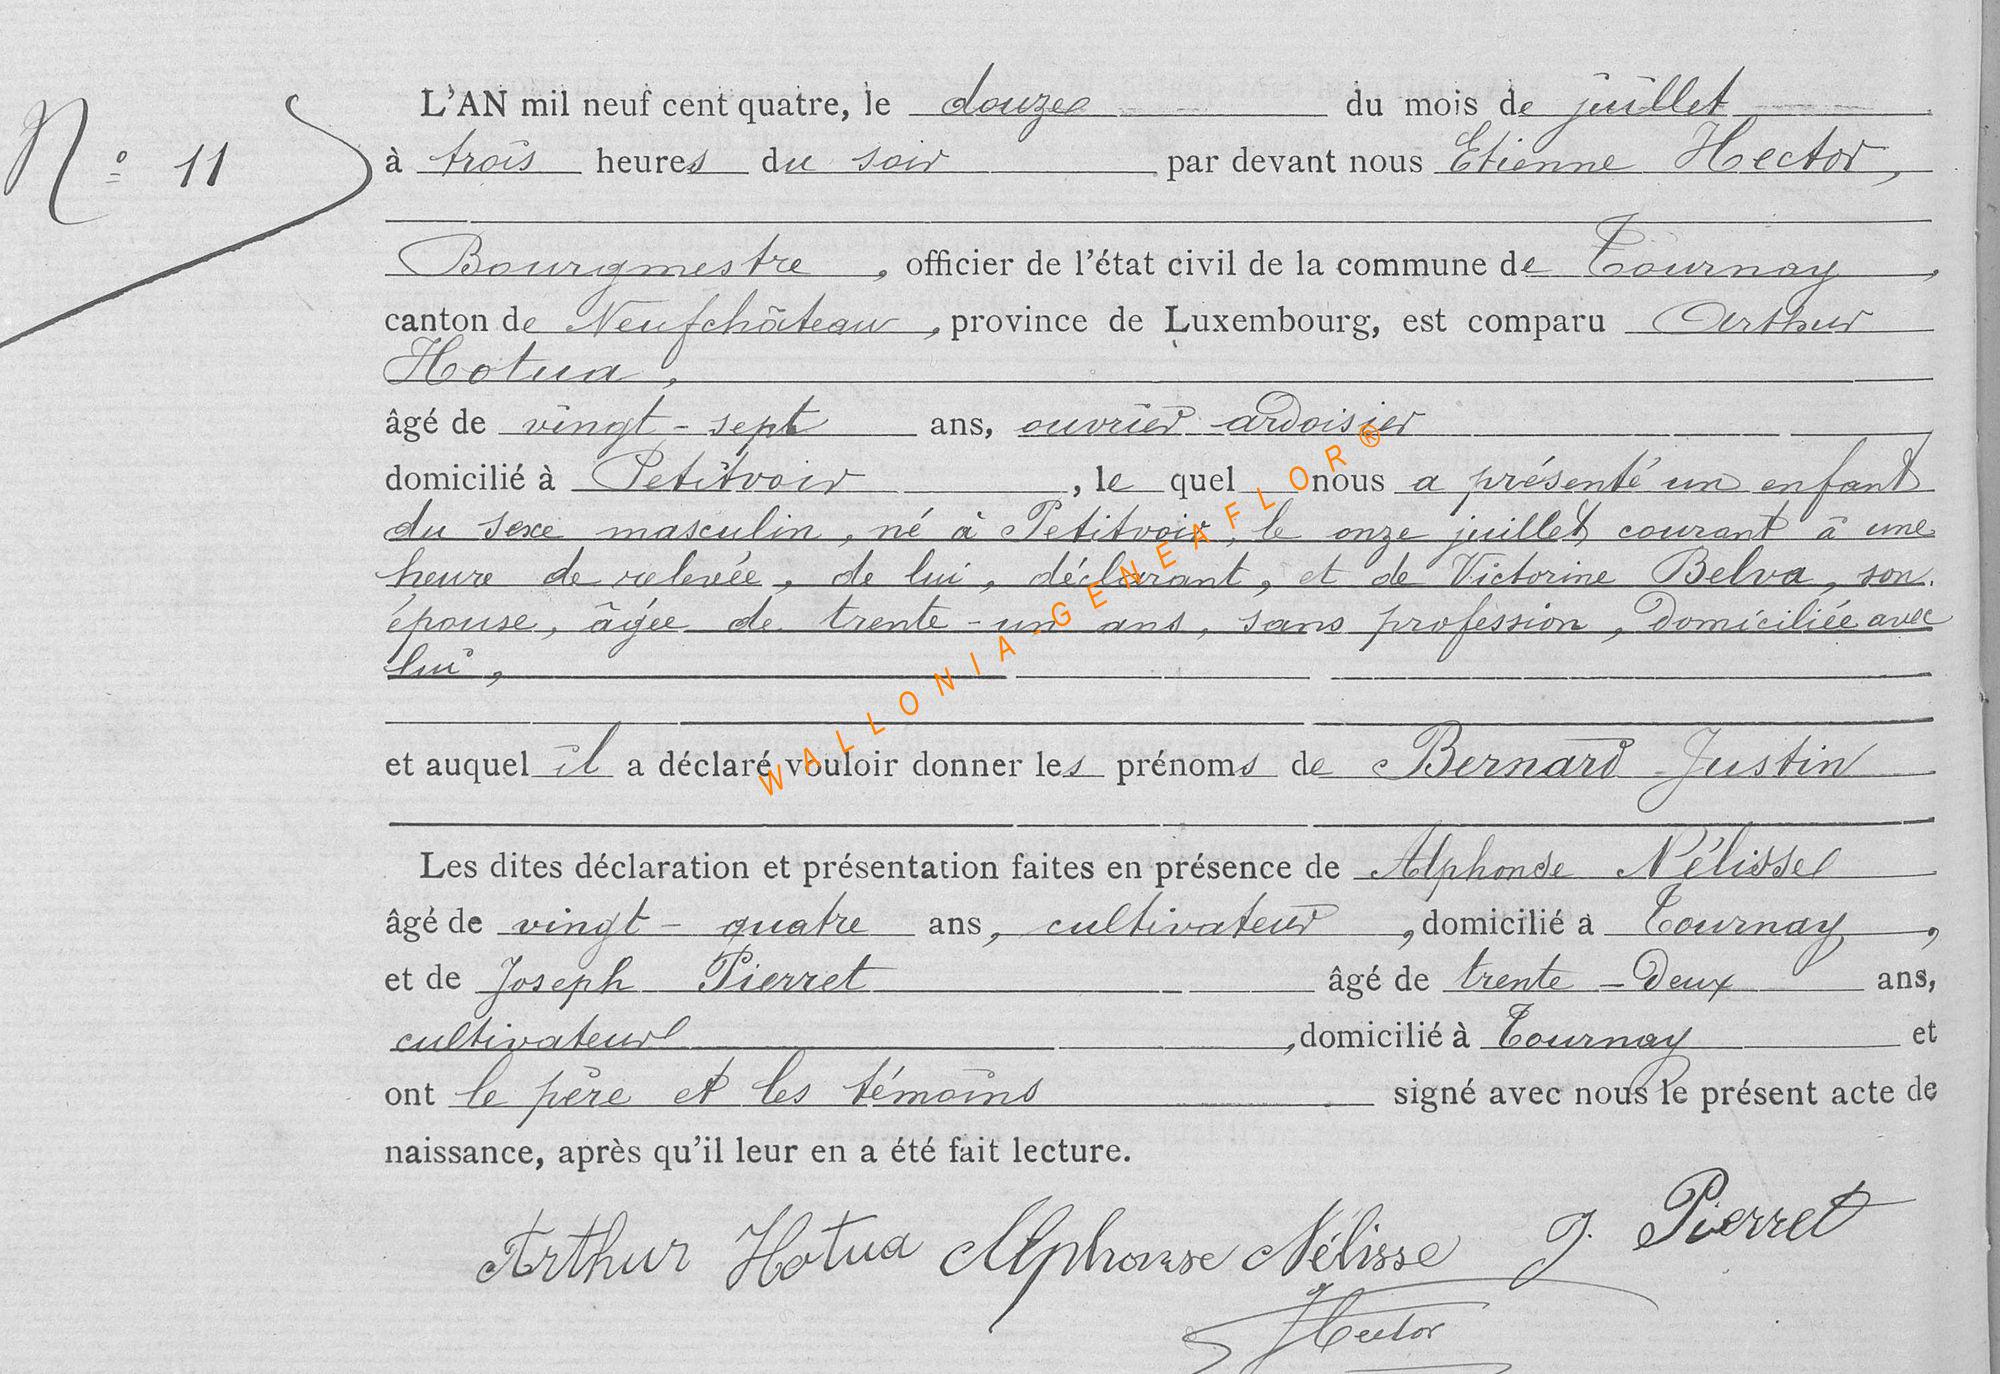 N° 11
L'AN mil neuf cent quatre, le douze du mois de juillet
à trois heures du soir par devant nous Etienne Hector,
Bourgmestre, officier de l'état civil de la commune de Tournay,
canton de Neufchâteau, province de Luxembourg, est comparu Arthur
Hotua,
âgé de vingt-sept ans, ouvrier ardoisier
domicilié à Petitvoir, le quel nous a présenté un enfant
du sexe masculin, né à Petitvoir, le onze juillet courant à une
heure de relevée, de lui, déclarant, et de Victorine Belva, son
épouse, âgée de trente-un ans, sans profession, domiciliée avec
lui,
et auquel il a déclaré vouloir donner les prénoms de Bernard Justin
Les dites déclaration et présentation faites en présence de Alphonse Nélisse
âgé de vingt-quatre ans, cultivateur, domicilié à Tournay,
et de Joseph Pierret âgé de trente-deux ans,
cultivateur, domicilié à Tournay et
ont le père et les témoins signé avec nous le présent acte de
naissance, après qu'il leur en a été fait lecture.
Arthur Hotua Alphonse Nélisse J. Pierret
Hector
WALLONIA-GENEAFLOR®